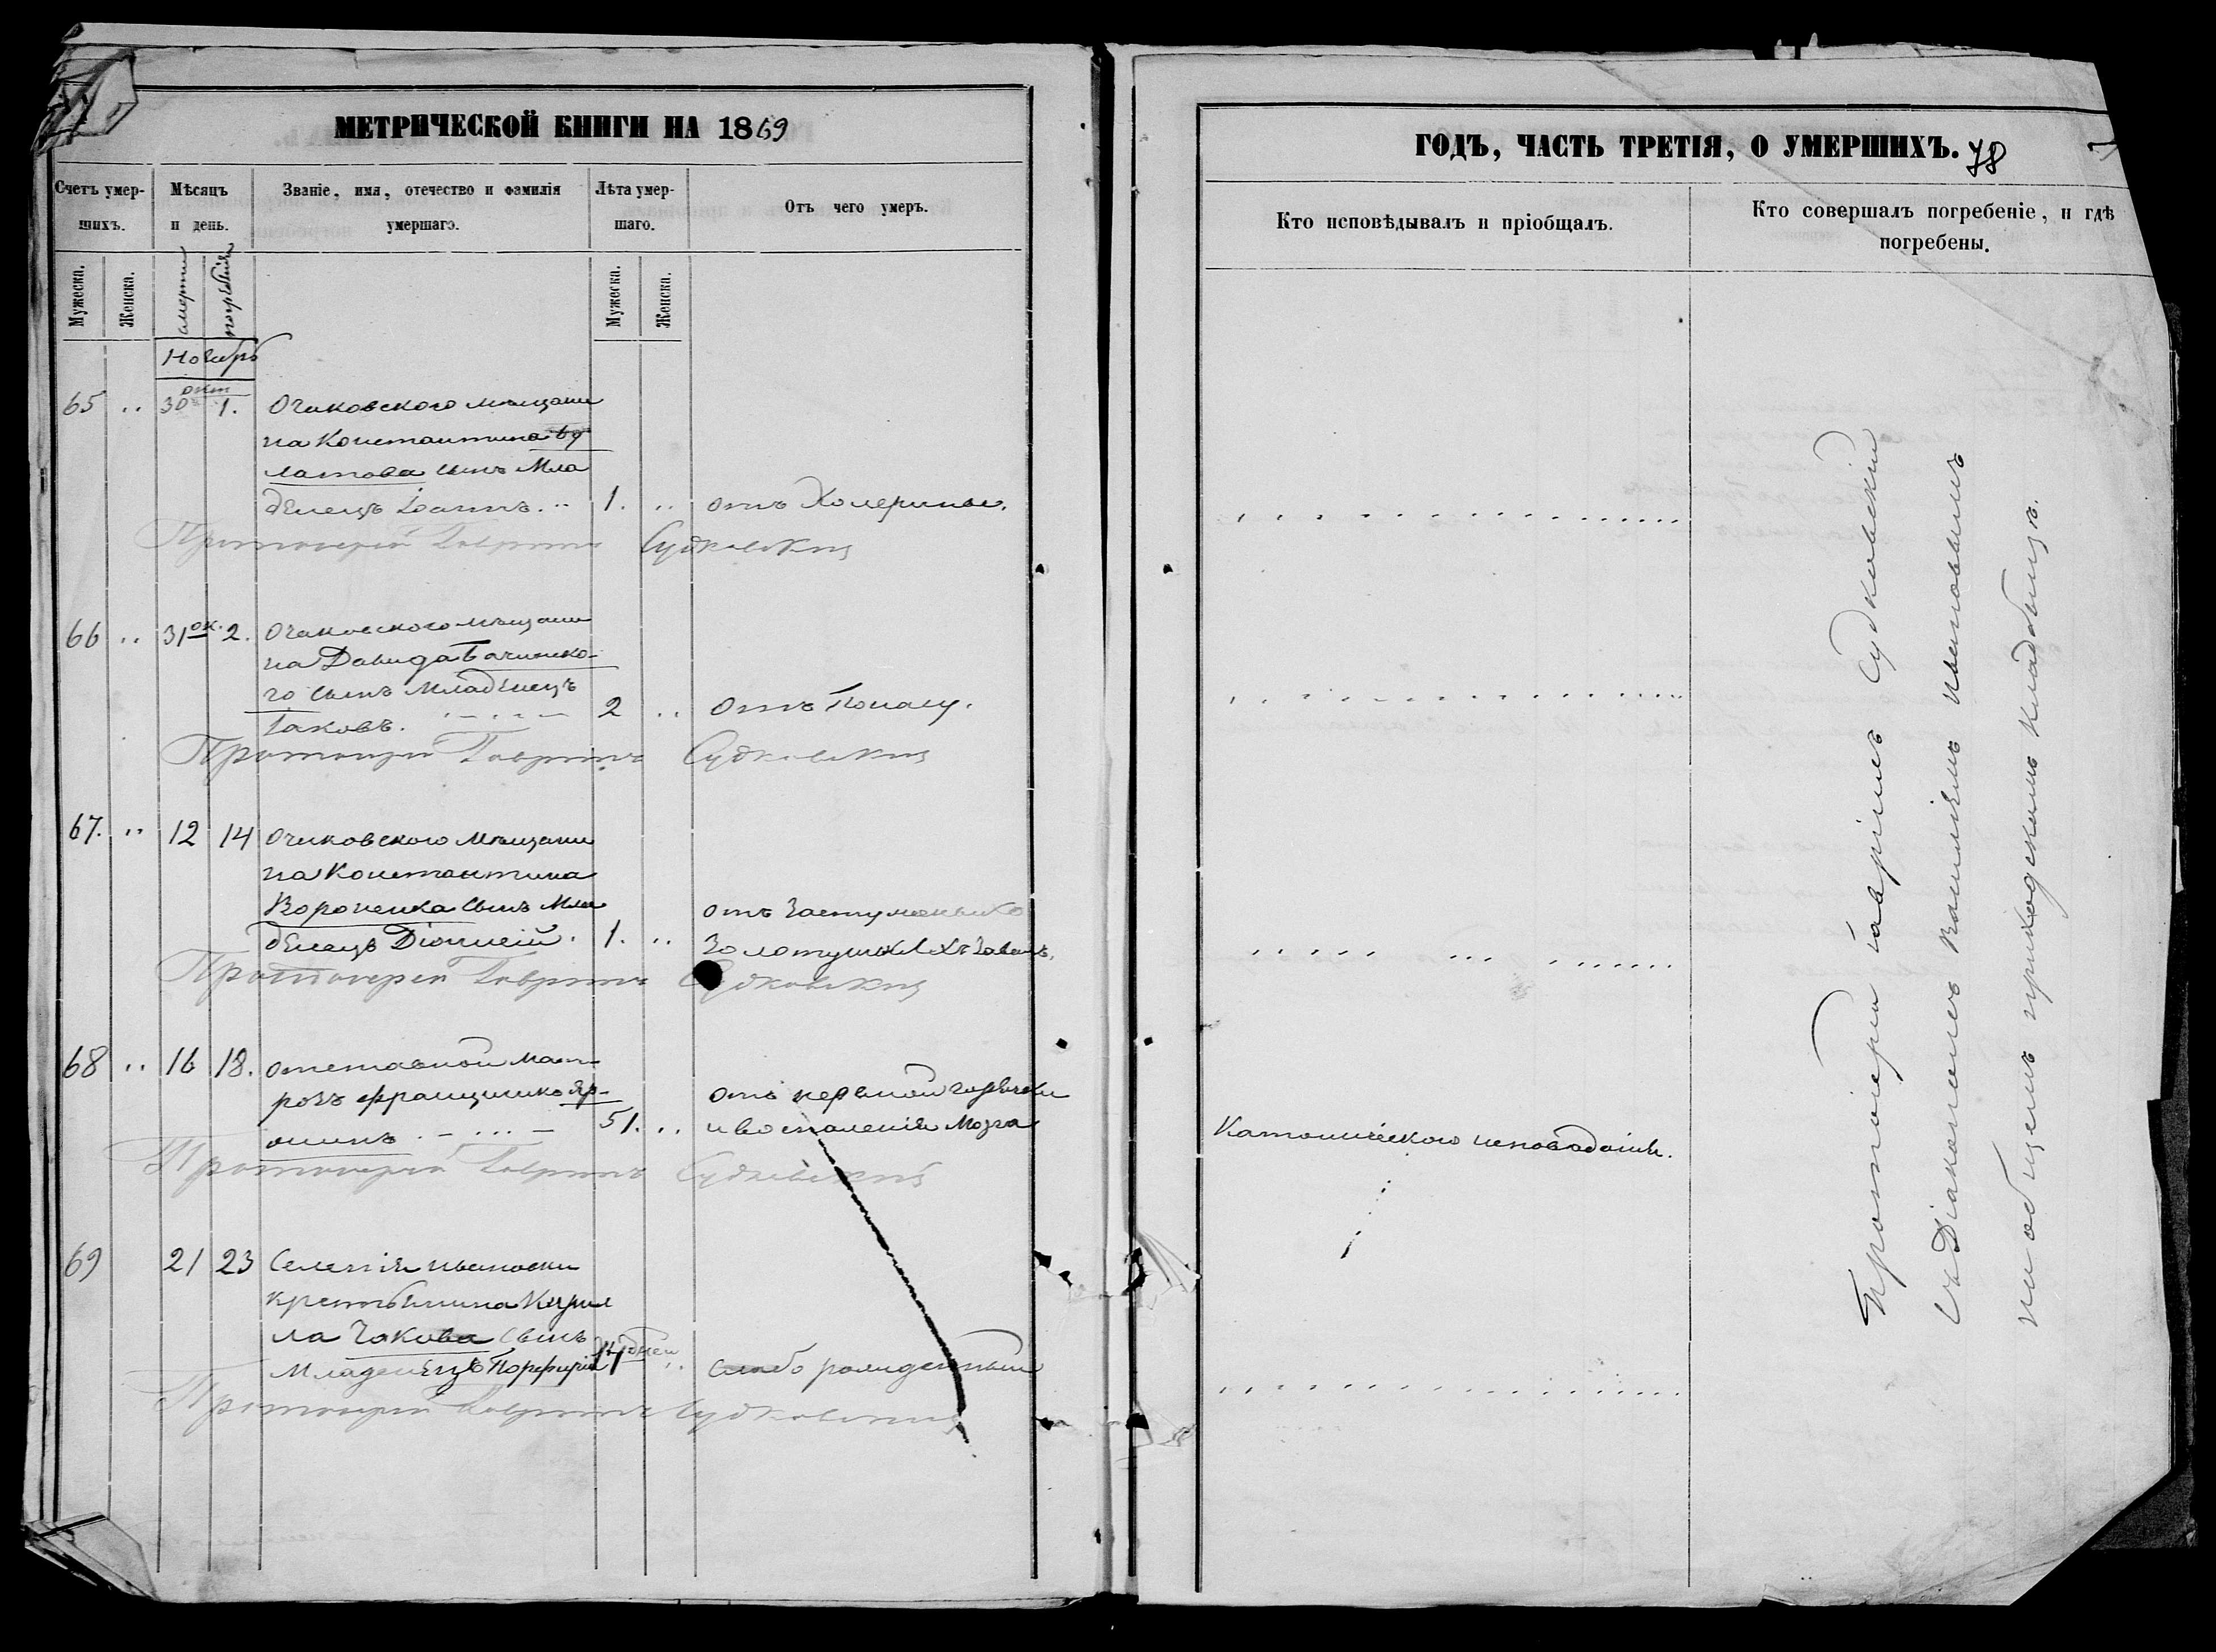 МЕТРИЧЕСКОЙ КНИГИ НА 1869
Счетъ умер-
шихъ.
Мѣсяцъ
и день.
Званіе, имя, отечество и фамилія
умершаго.
Лѣта умер-
шаго.
Отъ чего умеръ.
Мужеска.
Женска.
смерти
погребенія
Мужеска.
Женска.
Ноябрь
65 .. 30 окт 1. Очаковского мѣщани
на Константина Бу
латова сынъ Мла
денецъ Іоаннъ. .. 1. .. отъ Холерины.
Протоіерей Гавріилъ Судковскій
66 .. 31 ок. 2. Очаковского мѣщани
на Давида
го сынъ Младенецъ
Іаковъ. 2 .. отъ
Протоіерей Гавріилъ Судковскій
67. .. 12 14 Очаковского Мѣщани
на Константина
Вороненка сынъ Мла
денецъ Діонисій. 1. .. отъ
Золотушныхъ
Протоіерей Гавріилъ Судковскій
68 .. 16 18. отставной Мат-
розъ
51. .. отъ нервной горячки
и воспаленія Мозга
Протоіерей Гавріилъ Судковскій
69 21 23 Селенія Ивановки
крестьянина Кирил
ла Чакова сынъ
Младенецъ Порфирій дней .. слабо рожденный
Протоіерей Гавріилъ Судковскій
ГОДЪ, ЧАСТЬ ТРЕТІЯ, О УМЕРШИХЪ. 78
Кто исповѣдывалъ и пріобщалъ.
Кто совершалъ погребеніе, и гдѣ
погребены.
Католического исповѣданія.
Протоіерей Гавріилъ Судковскій
съ Діакономъ Василіемъ Ивановымъ
на общемъ приходскомъ кладбищѣ.